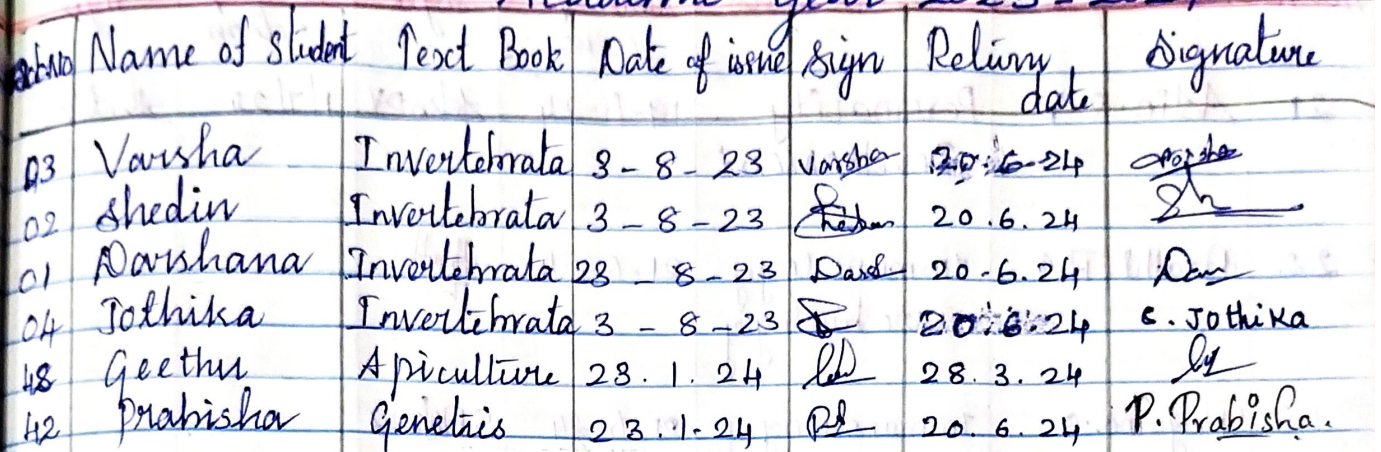 Academic Year 2023-2024
Name of Student Text Book Date of issue Sign Return date Signature
03 Varsha Invertebrata 3-8-23 Varsha 20.6-24
02 Shedin Invertebrata 3-8-23 20.6.24
01 Darshana Invertebrata 23-8-23 Darsh 20-6.24 Dar
04 Jothika Invertebrata 3-8-23 20.6.24 C. Jothika
48 Geethu Apiculture 23.1.24 28.3.24
42 Prabisha Genetics 23.1.24 20.6.24 P. Prabisha.